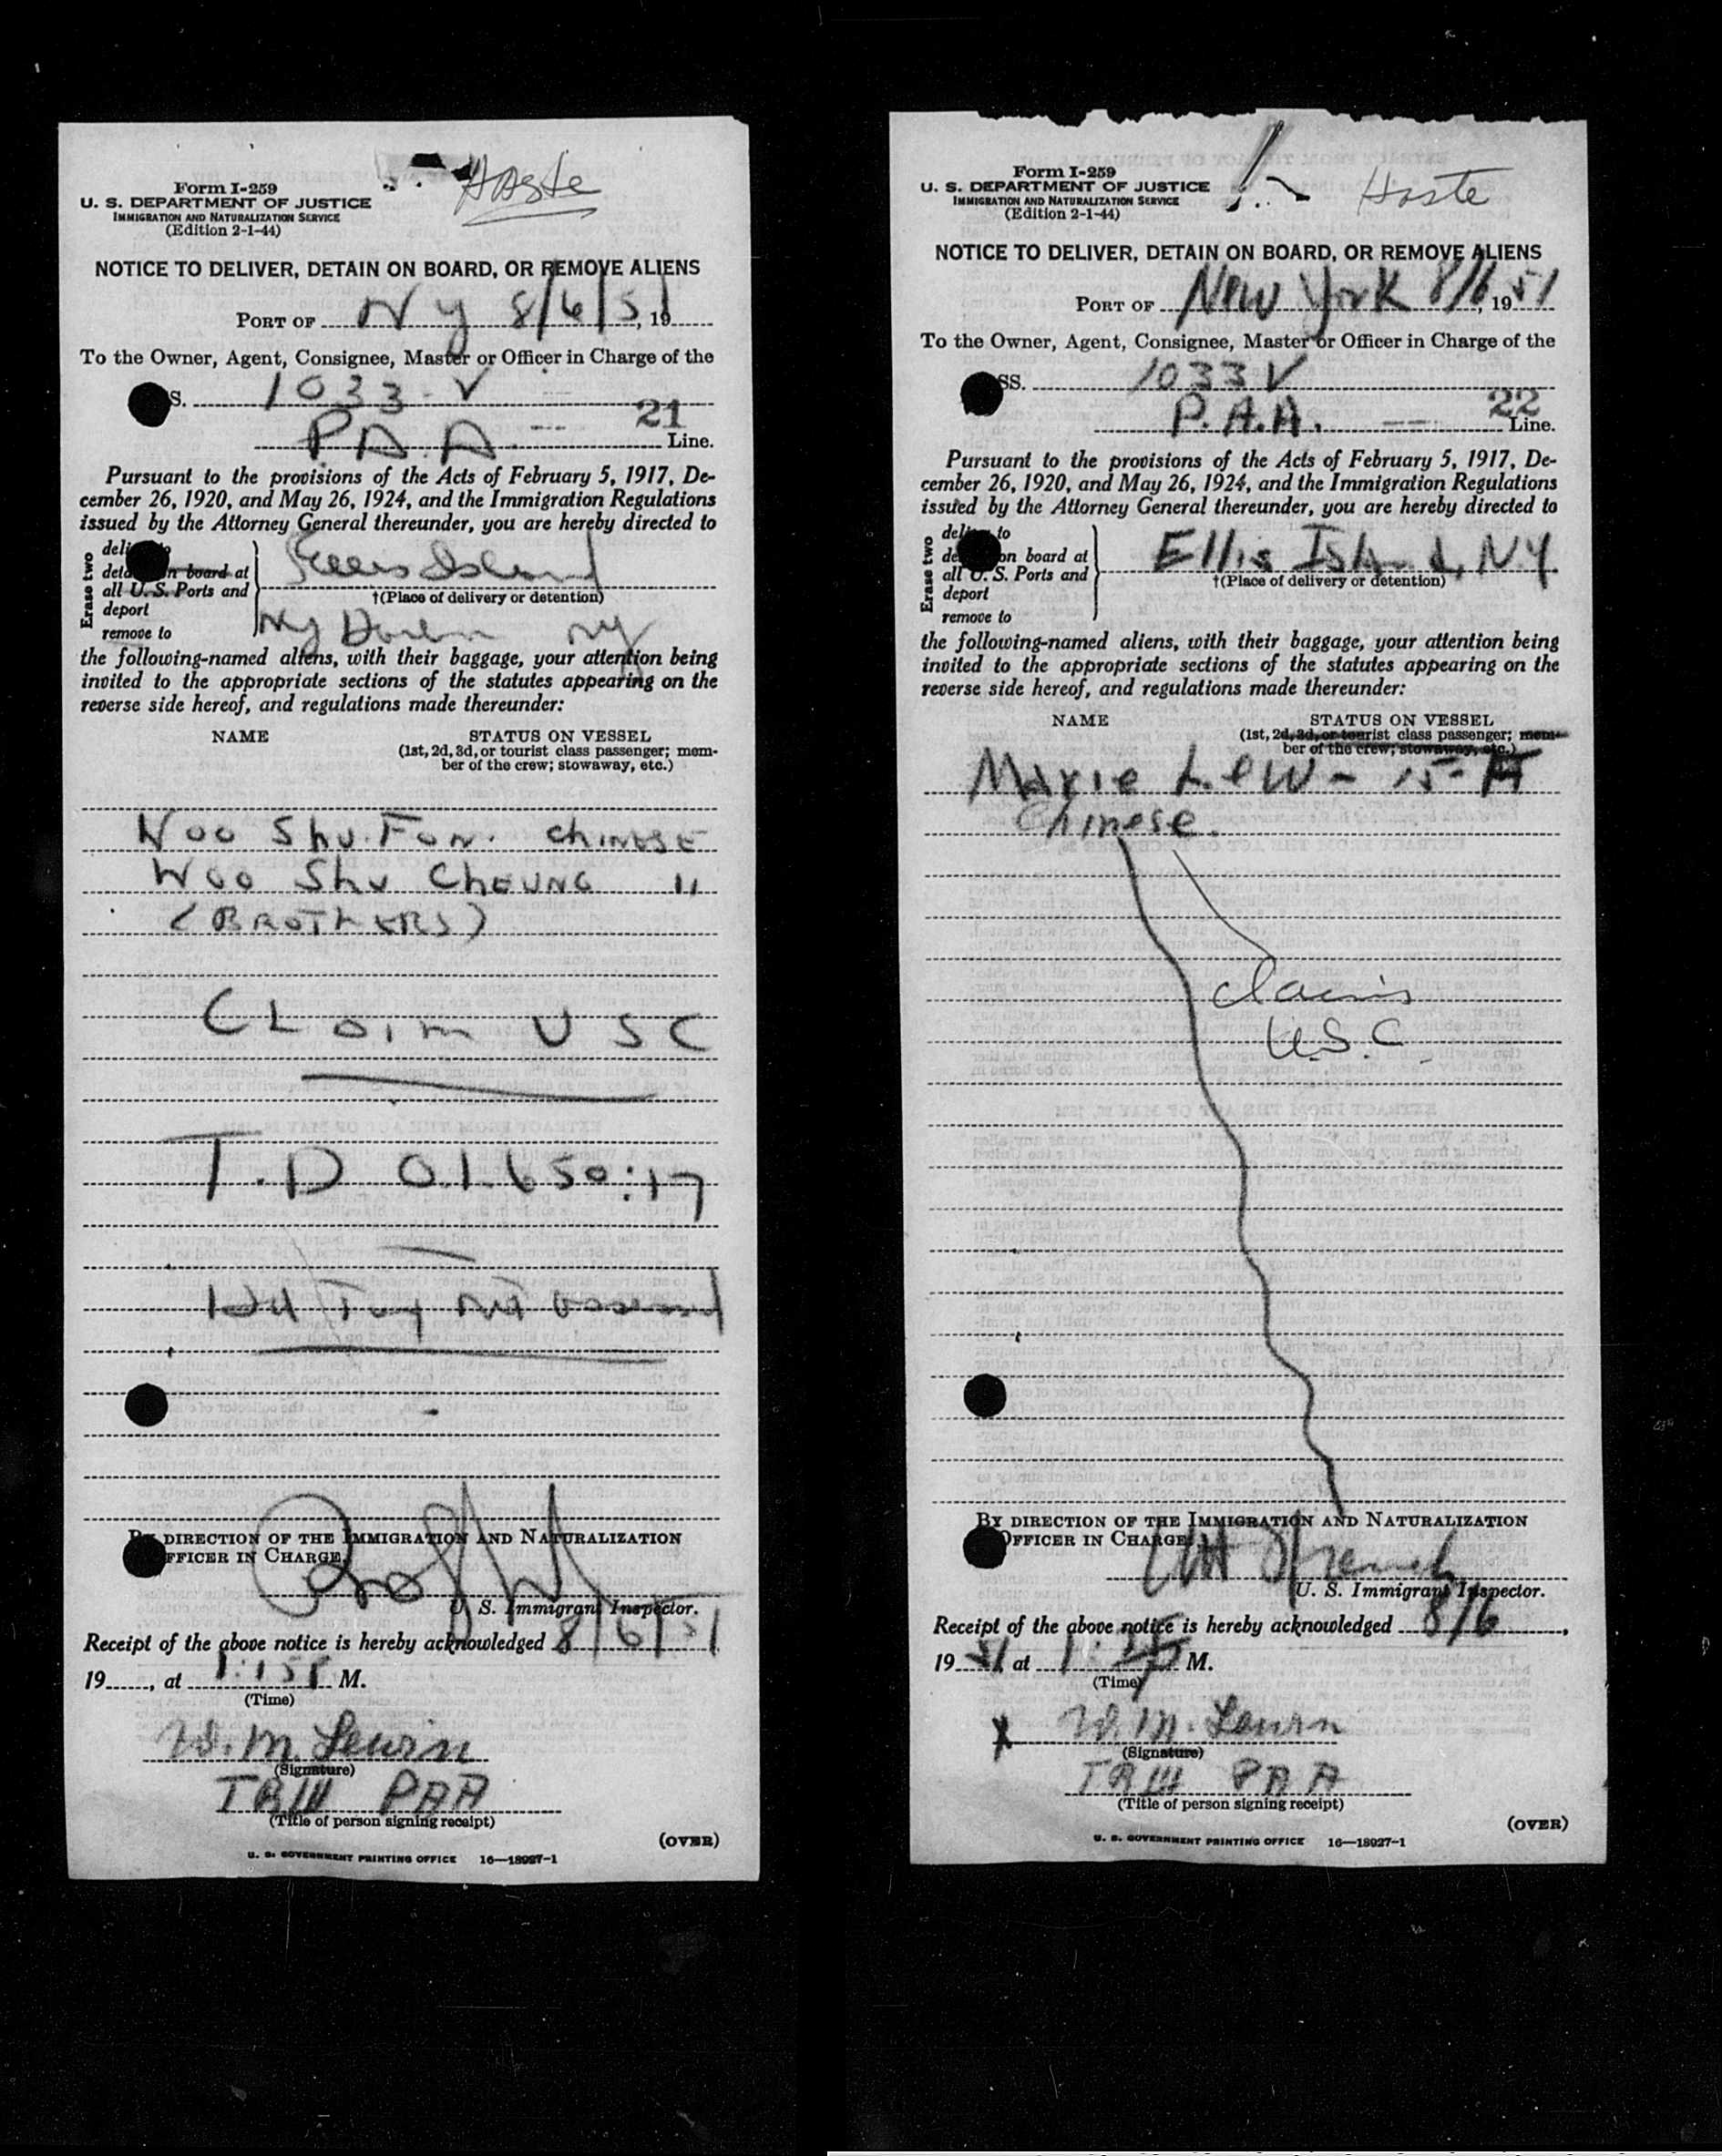 Haste
Form I-259
U. S. DEPARTMENT OF JUSTICE
IMMIGRATION AND NATURALIZATION SERVICE
(Edition 2-1-44)
NOTICE TO DELIVER, DETAIN ON BOARD, OR REMOVE ALIENS
PORT OF NY 8/6/51, 19
To the Owner, Agent, Consignee, Master or Officer in Charge of the
S. 1033-V
21
P.A.A. Line.
Pursuant to the provisions of the Acts of February 5, 1917, De-
cember 26, 1920, and May 26, 1924, and the Immigration Regulations
issued by the Attorney General thereunder, you are hereby directed to
Erase two
on board at
all U. S. Ports and
deport
remove to
Ellis Island
†(Place of delivery or detention)
NY
the following-named aliens, with their baggage, your attention being
invited to the appropriate sections of the statutes appearing on the
reverse side hereof, and regulations made thereunder:
NAME STATUS ON VESSEL
(1st, 2d, 3d, or tourist class passenger; mem-
ber of the crew; stowaway, etc.)
Woo Shu Fon. Chinese
Woo Shu Cheung "
(BROTHERS)
CLaim USC
T.D 0.1.650:17
Not
BY DIRECTION OF THE IMMIGRATION AND NATURALIZATION
OFFICER IN CHARGE
U. S. Immigrant Inspector.
Receipt of the above notice is hereby acknowledged 8/6/51
19, at M.
(Time)
W. M. Lewin
(Signature)
PAA
(Title of person signing receipt)
(OVER)
U. S. GOVERNMENT PRINTING OFFICE 16—18927-1
Haste
Form I-259
U. S. DEPARTMENT OF JUSTICE
IMMIGRATION AND NATURALIZATION SERVICE
(Edition 2-1-44)
NOTICE TO DELIVER, DETAIN ON BOARD, OR REMOVE ALIENS
PORT OF New York 8/6, 1951
To the Owner, Agent, Consignee, Master or Officer in Charge of the
SS. 1033V
22
P.A.A. Line.
Pursuant to the provisions of the Acts of February 5, 1917, De-
cember 26, 1920, and May 26, 1924, and the Immigration Regulations
issued by the Attorney General thereunder, you are hereby directed to
Erase two
to
on board at
all U. S. Ports and
deport
remove to
Ellis Island, N.Y
†(Place of delivery or detention)
the following-named aliens, with their baggage, your attention being
invited to the appropriate sections of the statutes appearing on the
reverse side hereof, and regulations made thereunder:
NAME STATUS ON VESSEL
(1st, 2d, 3d, or tourist class passenger; mem-
ber of the crew; stowaway, etc.)
Marie Lew - 15-
Chinese.
claims
U.S.C.
BY DIRECTION OF THE IMMIGRATION AND NATURALIZATION
OFFICER IN CHARGE
U. S. Immigrant Inspector.
Receipt of the above notice is hereby acknowledged 8/6,
1951 at M.
(Time)
X W. M. Lewin
(Signature)
PAA
(Title of person signing receipt)
(OVER)
U. S. GOVERNMENT PRINTING OFFICE 16—18927-1